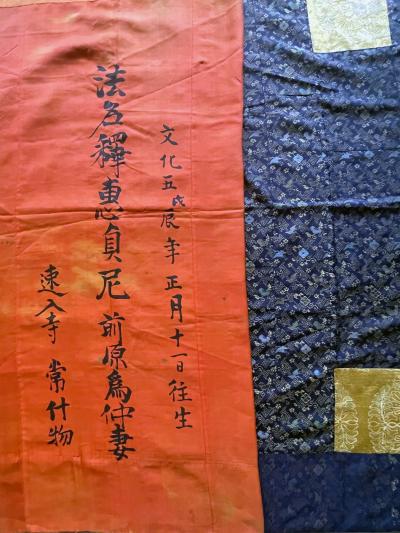 文化五戊辰年正月十一日往生
法名釋惠貞尼 前原為仲妻
速入寺 常什物